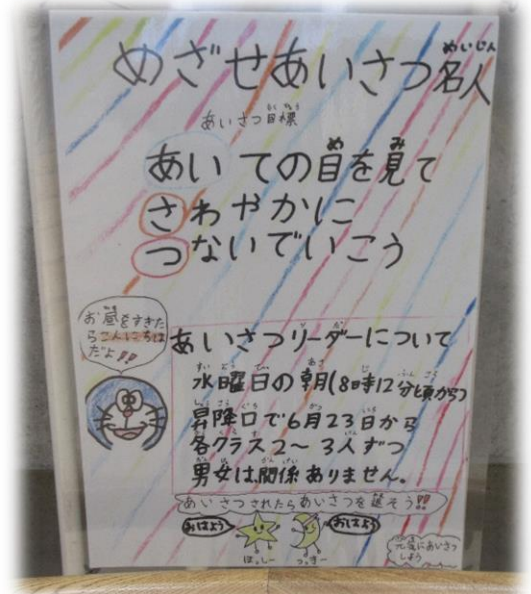 めざせあいさつ名人
あいさつ目標
あいての目を見て
さわやかに
つないでいこう
お昼をすぎた
らこんにちは
だよ!!
あいさつリーダーについて
水曜日の朝(8時12分頃から)
昇降口で6月23日から
各クラス2〜3人ずつ
男女は関係ありません。
あいさつされたらあいさつを返そう!!
おはよう
おはよう
ほっしー
つっきー
元気にあいさつ
しよう